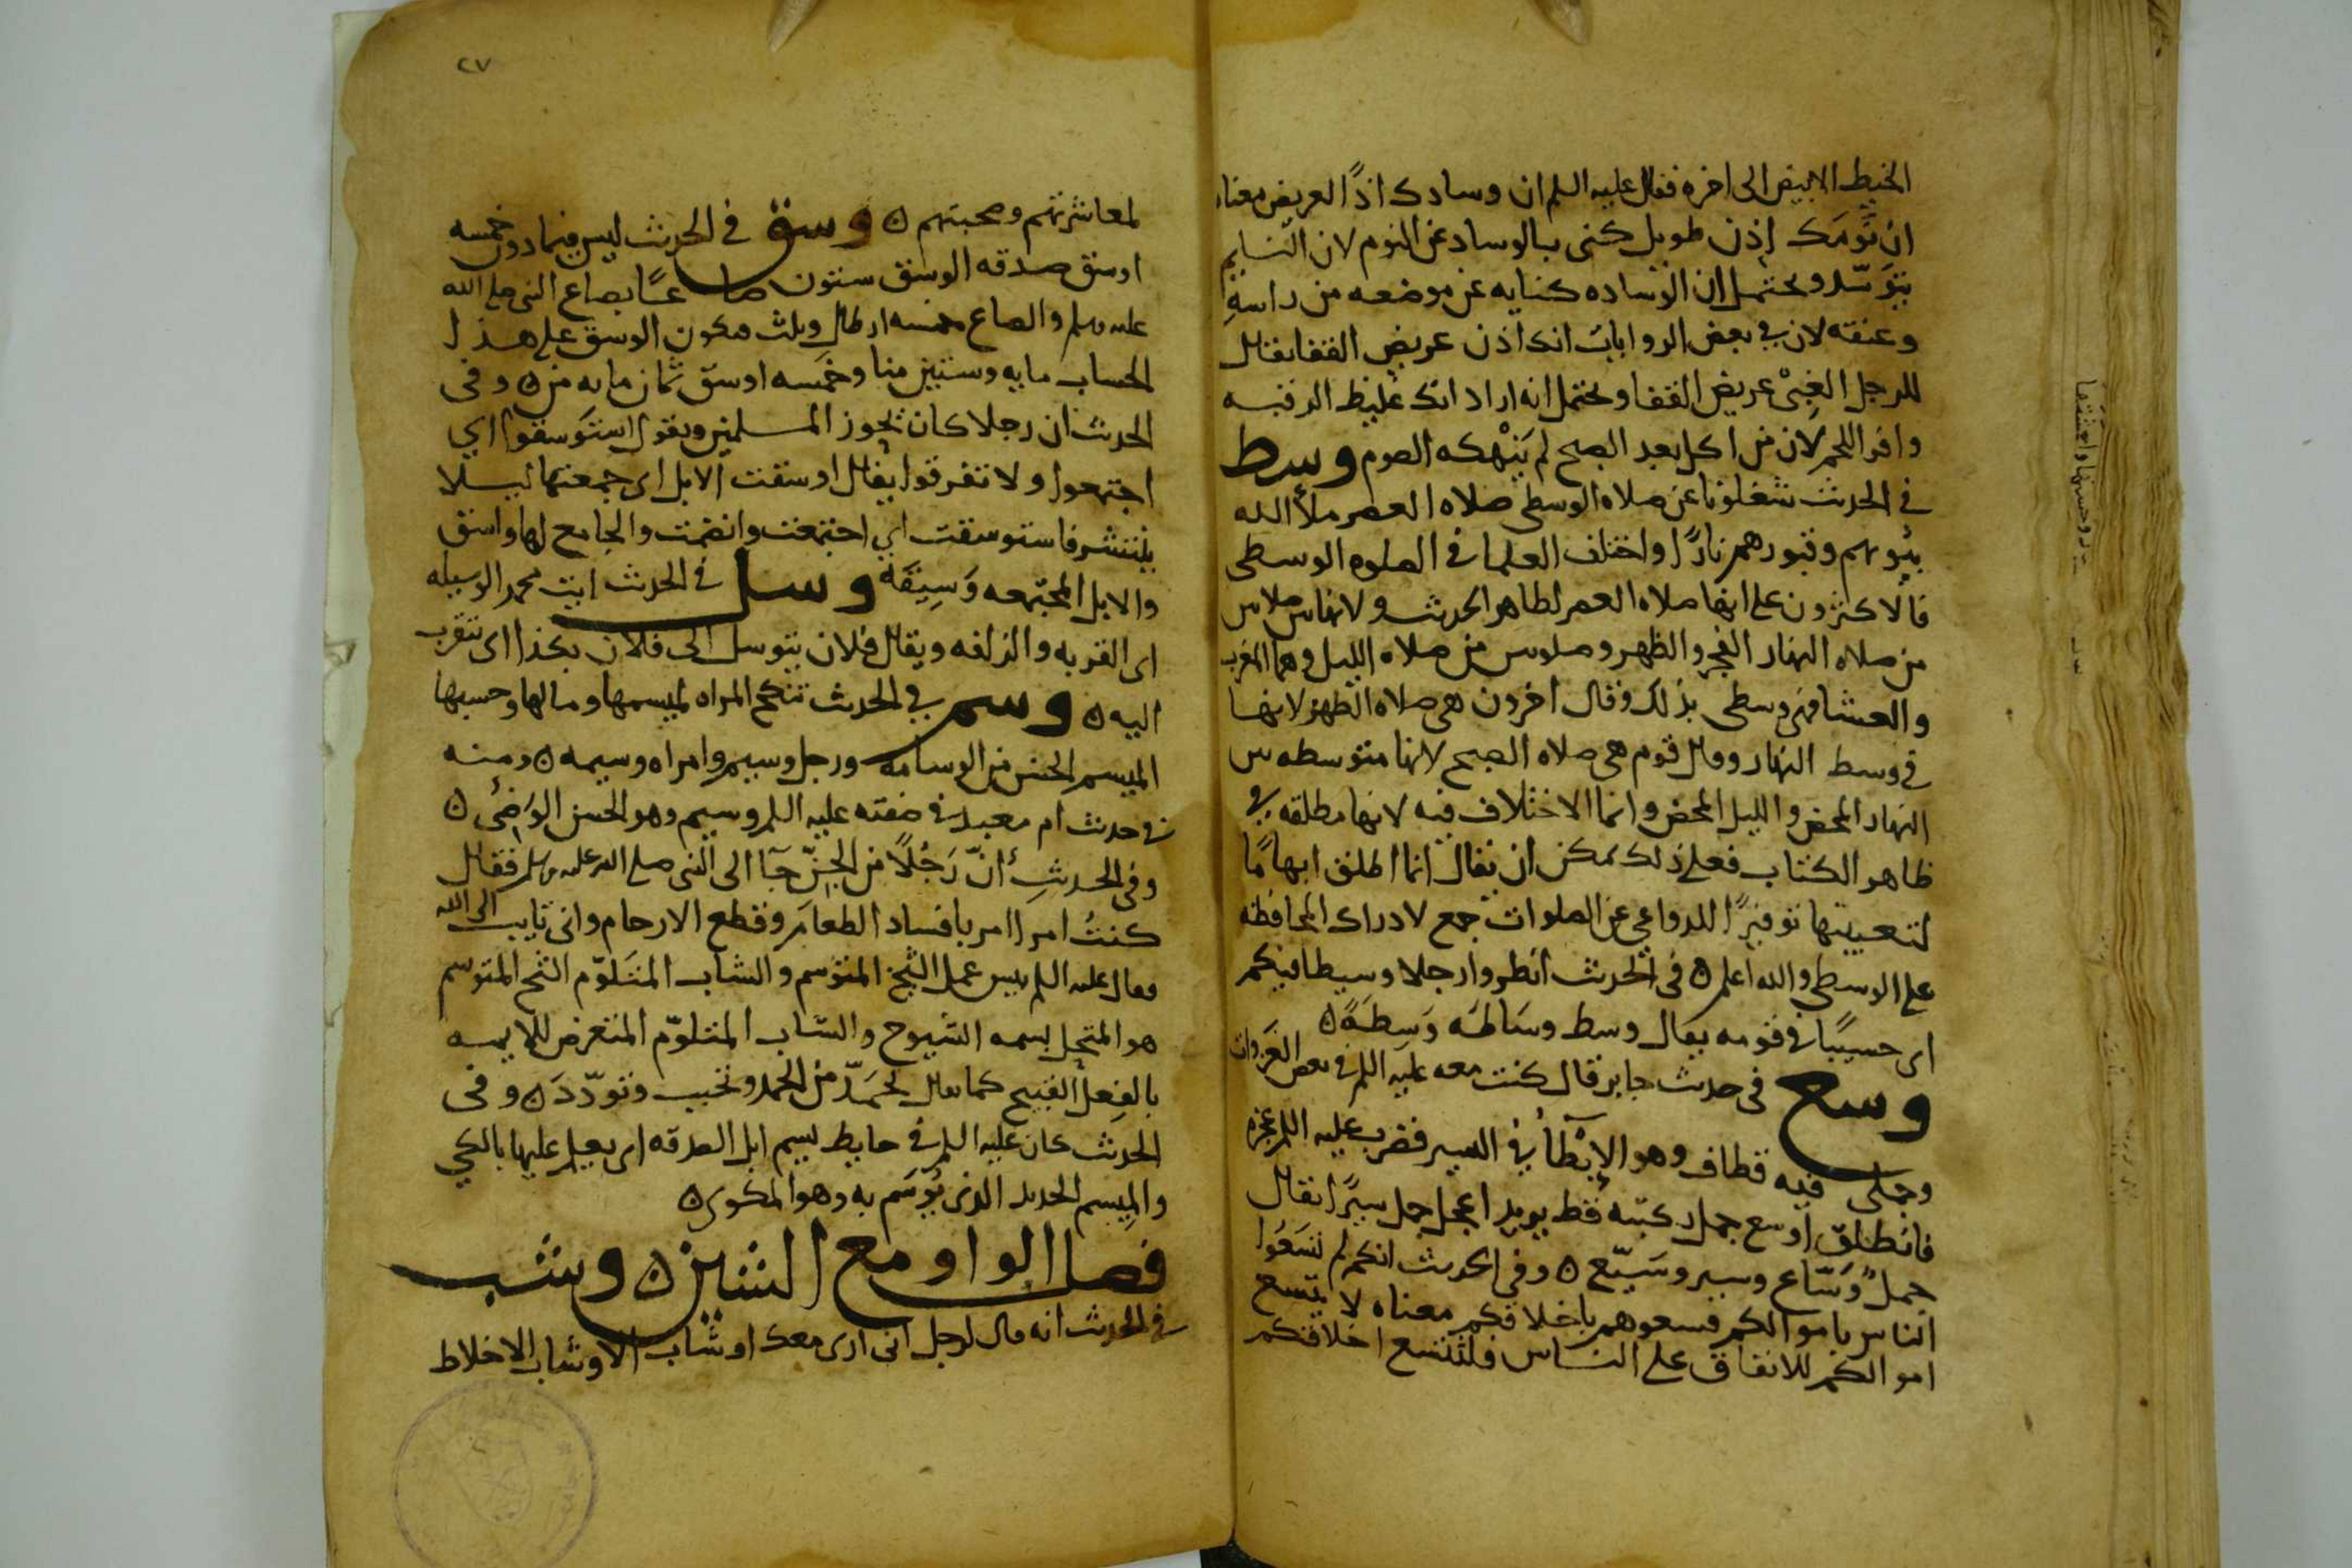 الخيط الابيض الى اخره فقال عليه السلم ان وسادك اذًا لعريض معناه
ان نَومَك إذن طويل كنى بالوساد عن النوم لان النايم
يتوسّد ويحتمل ان الوساده كنايه عن موضعه من راسهِ
وعنقه لان في بعض الروايات انك اذن عريض القفا يقال
للرجل الغبىْ عريض القفا ويحتمل انه اراد انك غليظ الرقبه
وافر اللحم لان من اكل بعد الصبح لم يَنْهكه الصوم وسط
في الحديث شغلونا عن صلاه الوسطى صلاه العصر ملأ الله
بيوتهم وقبورهم نارًا واختلف العلما في الصلوه الوسطى
فالاكثرون على انها صلاه العصر لظاهر الحديث ولانها بين صلاتين
من صلاه النهار الفجر والظهر وصلوتين من صلاه الليل وهما المغرب
والعشا فهى وسطى بذلك وقال اخرون هى صلاه الظهر لانها
في وسط النهار وقال قوم هى صلاه الصبح لانها متوسطه بين
النهار المحض والليل المحض وانما الاختلاف فيه لانها مطلقه في
ظاهر الكتاب فعلى ذلك يمكن ان يقال انما اطلق ابهامًا
لتعيينها توفيرًا للدواعي عن الصلوات جمع لادراك المحافظه
على الوسطى والله اعلم ه في الحديث انظروا رجلا وسيطا فيكم
اى حسيبًا في قومه يقال وسط وسَاطَه وَسِطَةً ه
وسع في حديث جابر قال كنت معه عليه السلم في بعض الغزوات
وجملى فيه قطاف وهو الإبْطَآُ في السير فضرب عليه السلم عجزه
فانطلق اوسع جمل ركبته قط يريد اعجل جمل سيرًا يقال
جملٌ وَسّاع وسير وسَيّع ه وفي الحديث انكم لم تسَعُوا
الناس باموالكم فسعوهم باخلاقكم معناه لا يتسع
اموالكم للانفاق على الناس فلتتسع اخلاقكم
٢٧
لمعاشرتهم وصحبتهم ه وسق في الحديث ليس فيما دون خمسه
اوسق صدقه الوسق ستون صاعًا بصاع النبى صلى الله
عليه وسلم والصاع خمسه ارطال وثلث فيكون الوسق على هذا
الحساب مايه وستين منا وخَمسه اوسق ثمان مايه من ه وفى
الحديث ان رجلا كان يجوز المسلمين ويقول استوسقوا اي
اجتمعوا ولا تتفرقوا يقال اوسقت الابل اى جمعتها ليلا
ينتشر فاستوسقت اي اجتمعت وانضمت والجامع لها واسق
والابل المجتمعه وَسِيقَه وسل في الحديث ايت محمد الوسيله
اى القربه والزلفه ويقال فلان يتوسل الى فلان بكذا اى يتقرب
اليه ه وسم في الحديث تنكح المراه لميسمها ومالها وحسبها
الميسم الحسن من الوسامه ورجل وسيم وامراه وسيمه ه ومنه
في حديث ام معبد في صفته عليه السلم وسيم وهو الحسن الوَضئ ه
وفي الحديثِ أنّ رَجُلًا من الجِنّ جَآ الى النبى صلى الله عليه وسلم فقال
كنتُ امرا امر بافساد الطعام وقطع الارحام وانى تايب الى الله
فقال عليه السلم بيس عمل الشيخ المتوسم والشاب المتَلوّم الشيخ المتوسم
هو المتحلى بسمه الشيوخ والشاب المتلوّم المتعرض للايمه
بالفِعل القبيح كما يقال تحمَدّ من الحمد وتحبب وتودّدَ ه وفى
الحديث كان عليه السلم في حايط يسم ابل الصدقه اى يعلم عليها بالكي
والمِيسم الحديد الذى يُوسَم به وهو المكوى ه
فصل الواو مع الشين ه وشب
في الحديث انه قال لرجل انى ارى معك اوشاب الاوشاب الاخلاط